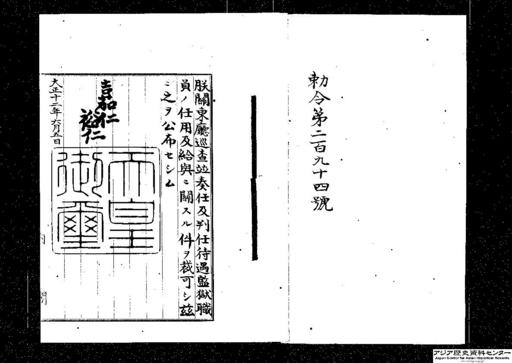 勅令第二百九十四號
朕關東廳巡査竝奏任及判任待遇監獄職
員ノ任用及給與ニ關スル件ヲ裁可シ茲
ニ之ヲ公布セシム
嘉仁
裕仁
天皇
御璽
大正十二年六月五日
アジア歴史資料センター
Japan Center for Asian Historical Records